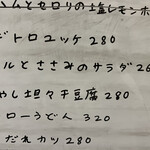 ムとセロリの塩レモンホ
ジトロユッケ 280
ルとささみのサラダ 26
やし坦々干豆腐 280
ローうどん 320
だれカツ 280